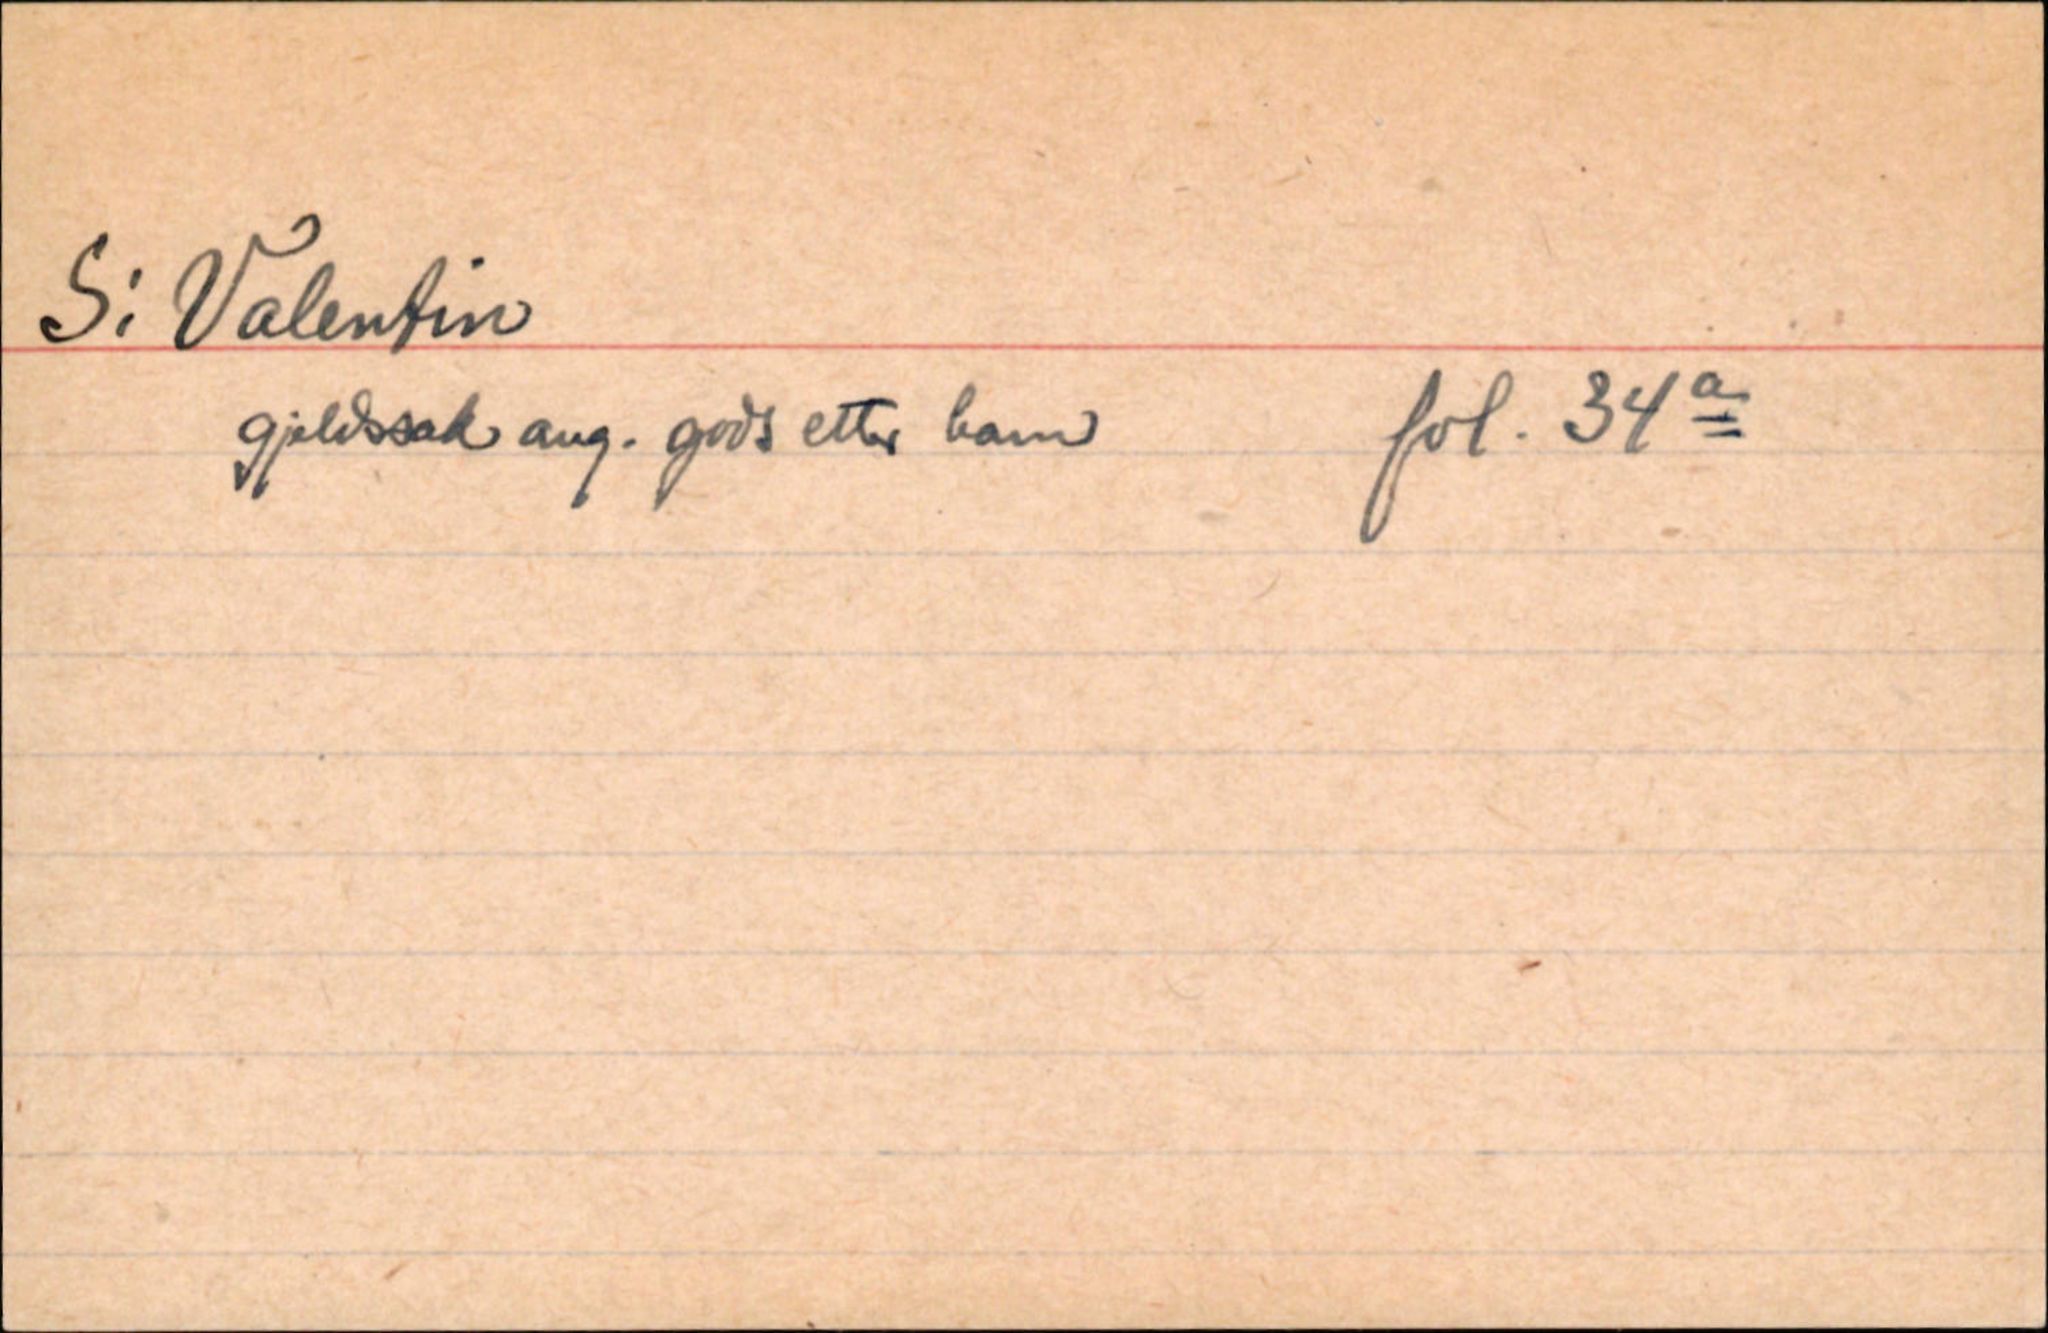 S: Valentin
gjeldssak ang. gods etter ham fol. 34a